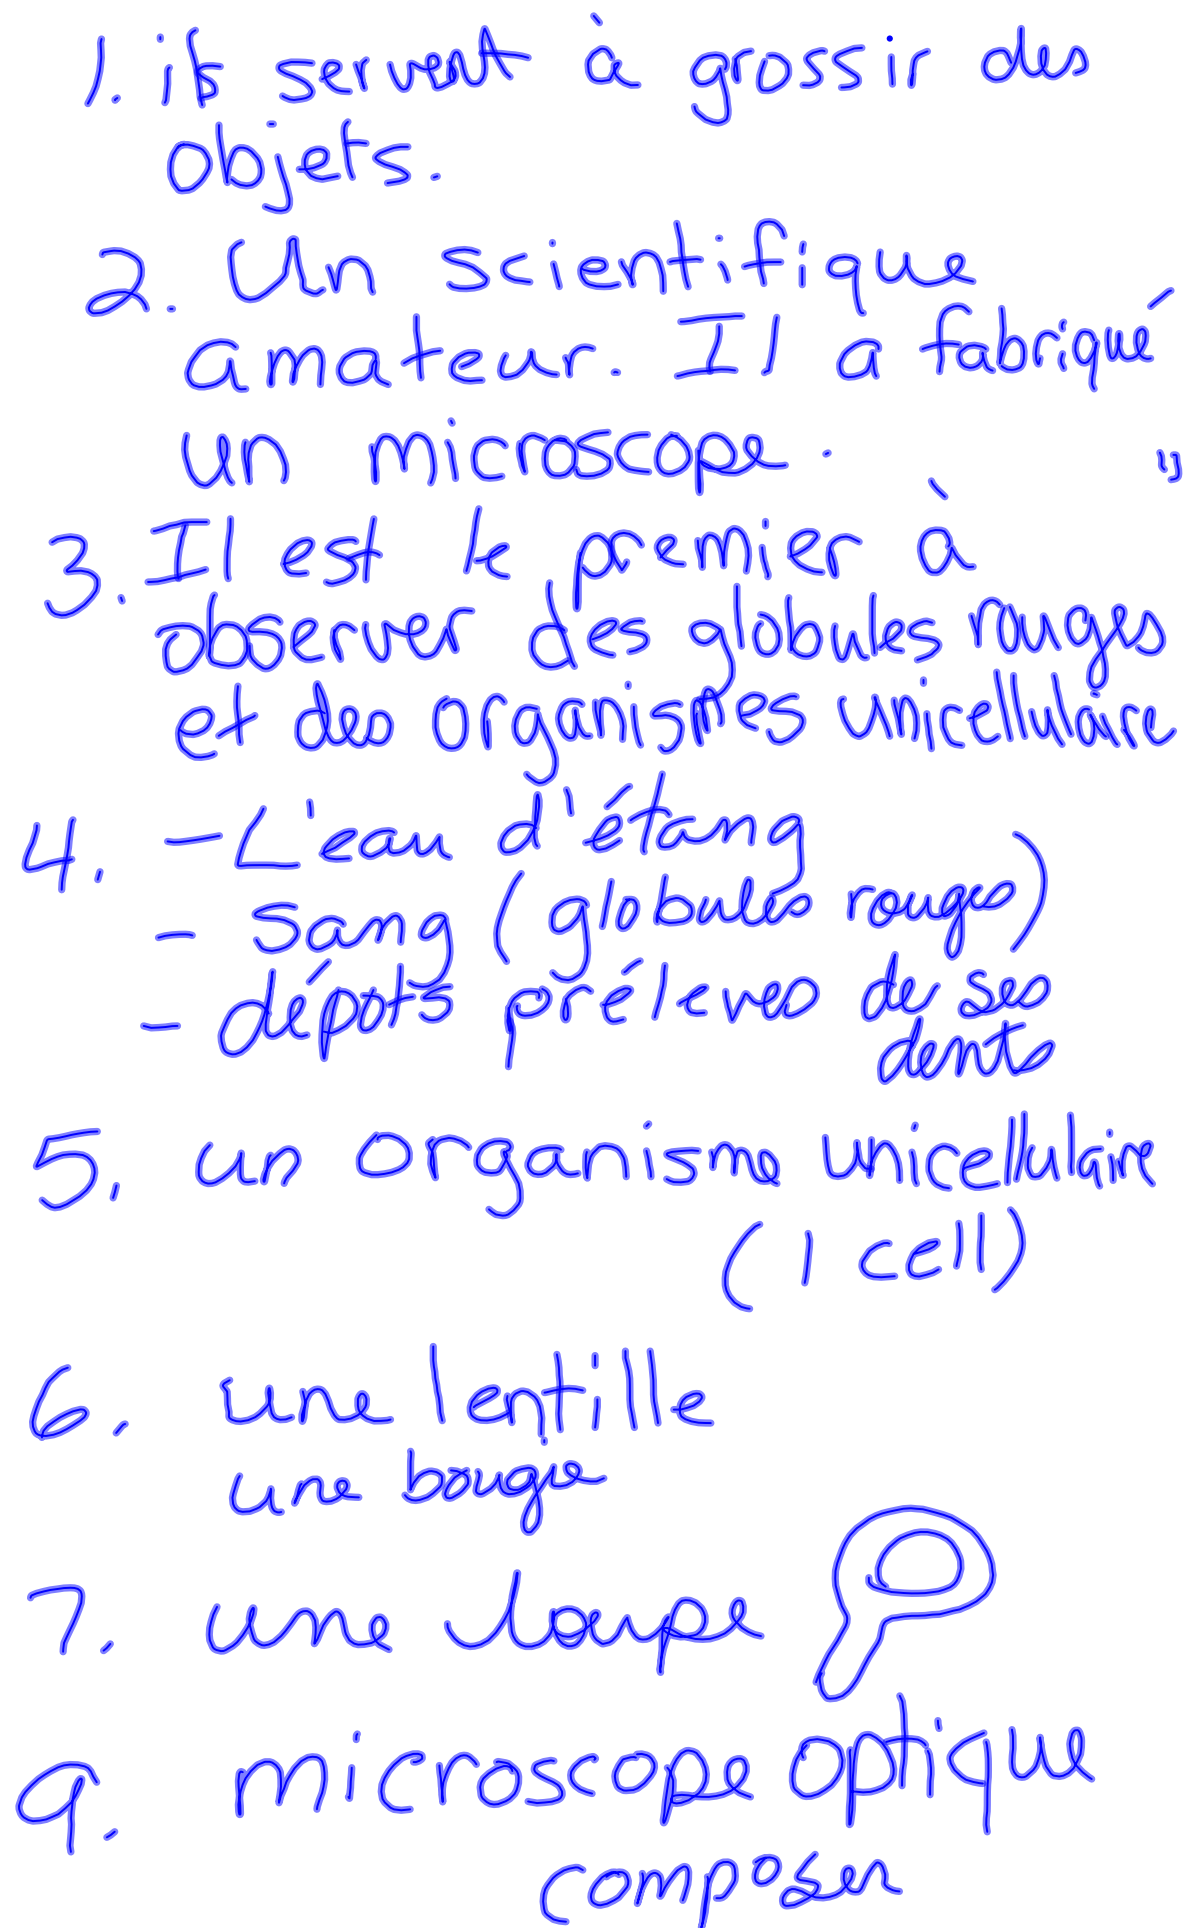 1. ils servent à grossir des
objets.
2. Un scientifique
amateur. Il a fabriqué
un microscope.
3. Il est le premier à
observer des globules rouges
et des organismes unicellulaire
4. - L'eau d'étang
- Sang (globules rouges)
- dépots préleves de ses
dents
5. un organisme unicellulaire
(1 cell)
6. une lentille
une bougie
7. une loupe
9. microscope optique
composer